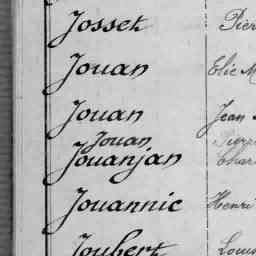 Josset Pier
Jouan Elie M
Jouan Jean
Jouan Pierre
Jouanjan Char
Jouannic Henri
Joubert Louis